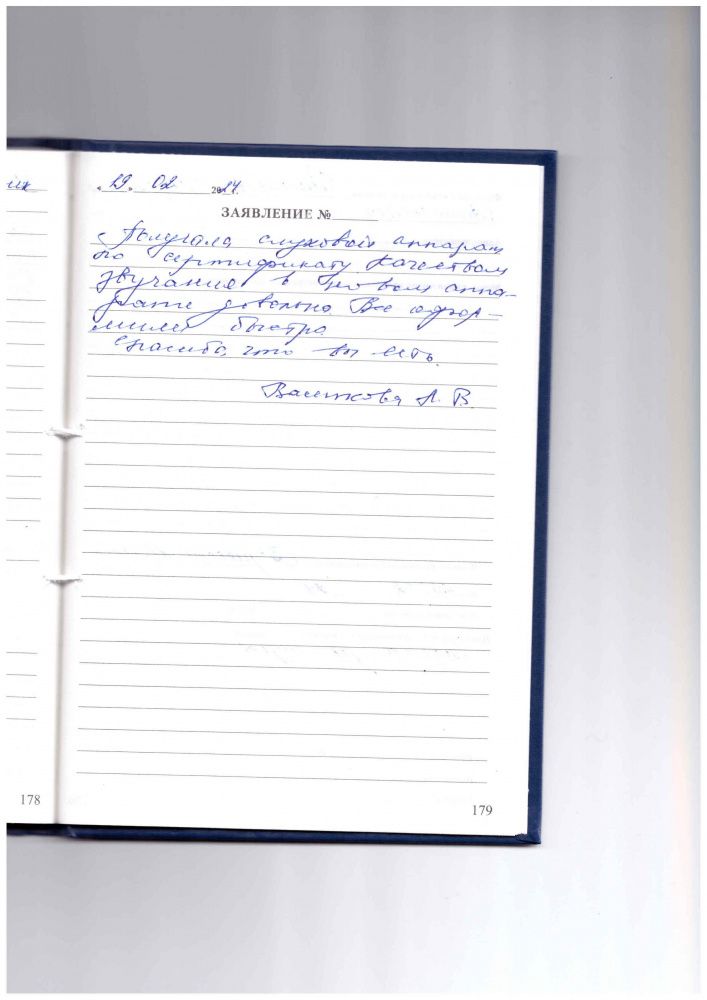 их
"29" 02 2024.
ЗАЯВЛЕНИЕ №
Получала слуховой аппарат
по сертификату. Качеством
звучания в новом аппа-
рате довольна. Все офор-
мили быстро
Спасибо, что вы есть.
Л. В.
178
179